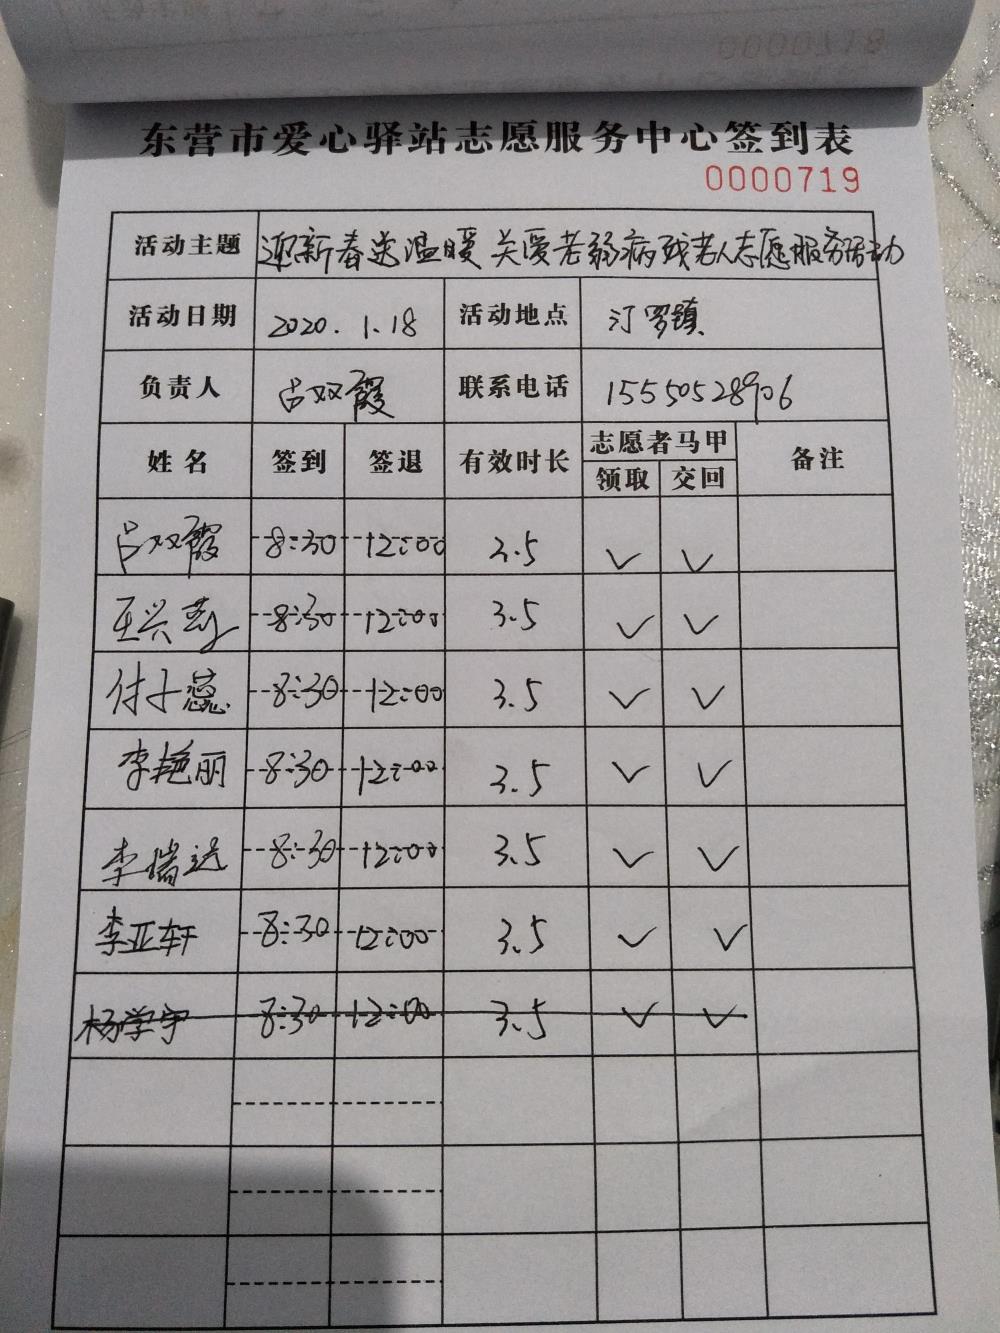 东营市爱心驿站志愿服务中心签到表
0000719
活动主题 迎新春送温暖 关爱老弱病残老人志愿服务活动
活动日期 2020.1.18 活动地点 汀罗镇
负责人 吕双霞 联系电话 15550528906
姓名 签到 签退 有效时长 志愿者马甲 备注
领取 交回
吕双霞 8:30 12:00 3.5 ✓ ✓
8:30 12:00 3.5 ✓ ✓
付子蕊 8:30 12:00 3.5 ✓ ✓
李艳丽 8:30 12:00 3.5 ✓ ✓
李瑞远 8:30 12:00 3.5 ✓ ✓
李亚轩 8:30 12:00 3.5 ✓ ✓
杨学宇 8:30 12:00 3.5 ✓ ✓